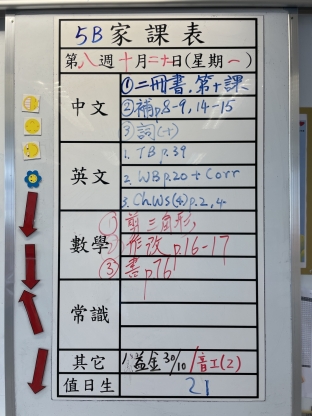 5B 家課表
第八週十月二十日(星期一)
中文
①二冊書.第十課
②補p.8-9,14-15
③詞(十)
英文
1. TB p.39
2. WB p.20 + Corr
3. Ch.WS(4)p.2,4
數學
①剪三角形,
②作改 p.16-17
③書p76
常識
其它 1.益金30/10 音工(2)
值日生 21